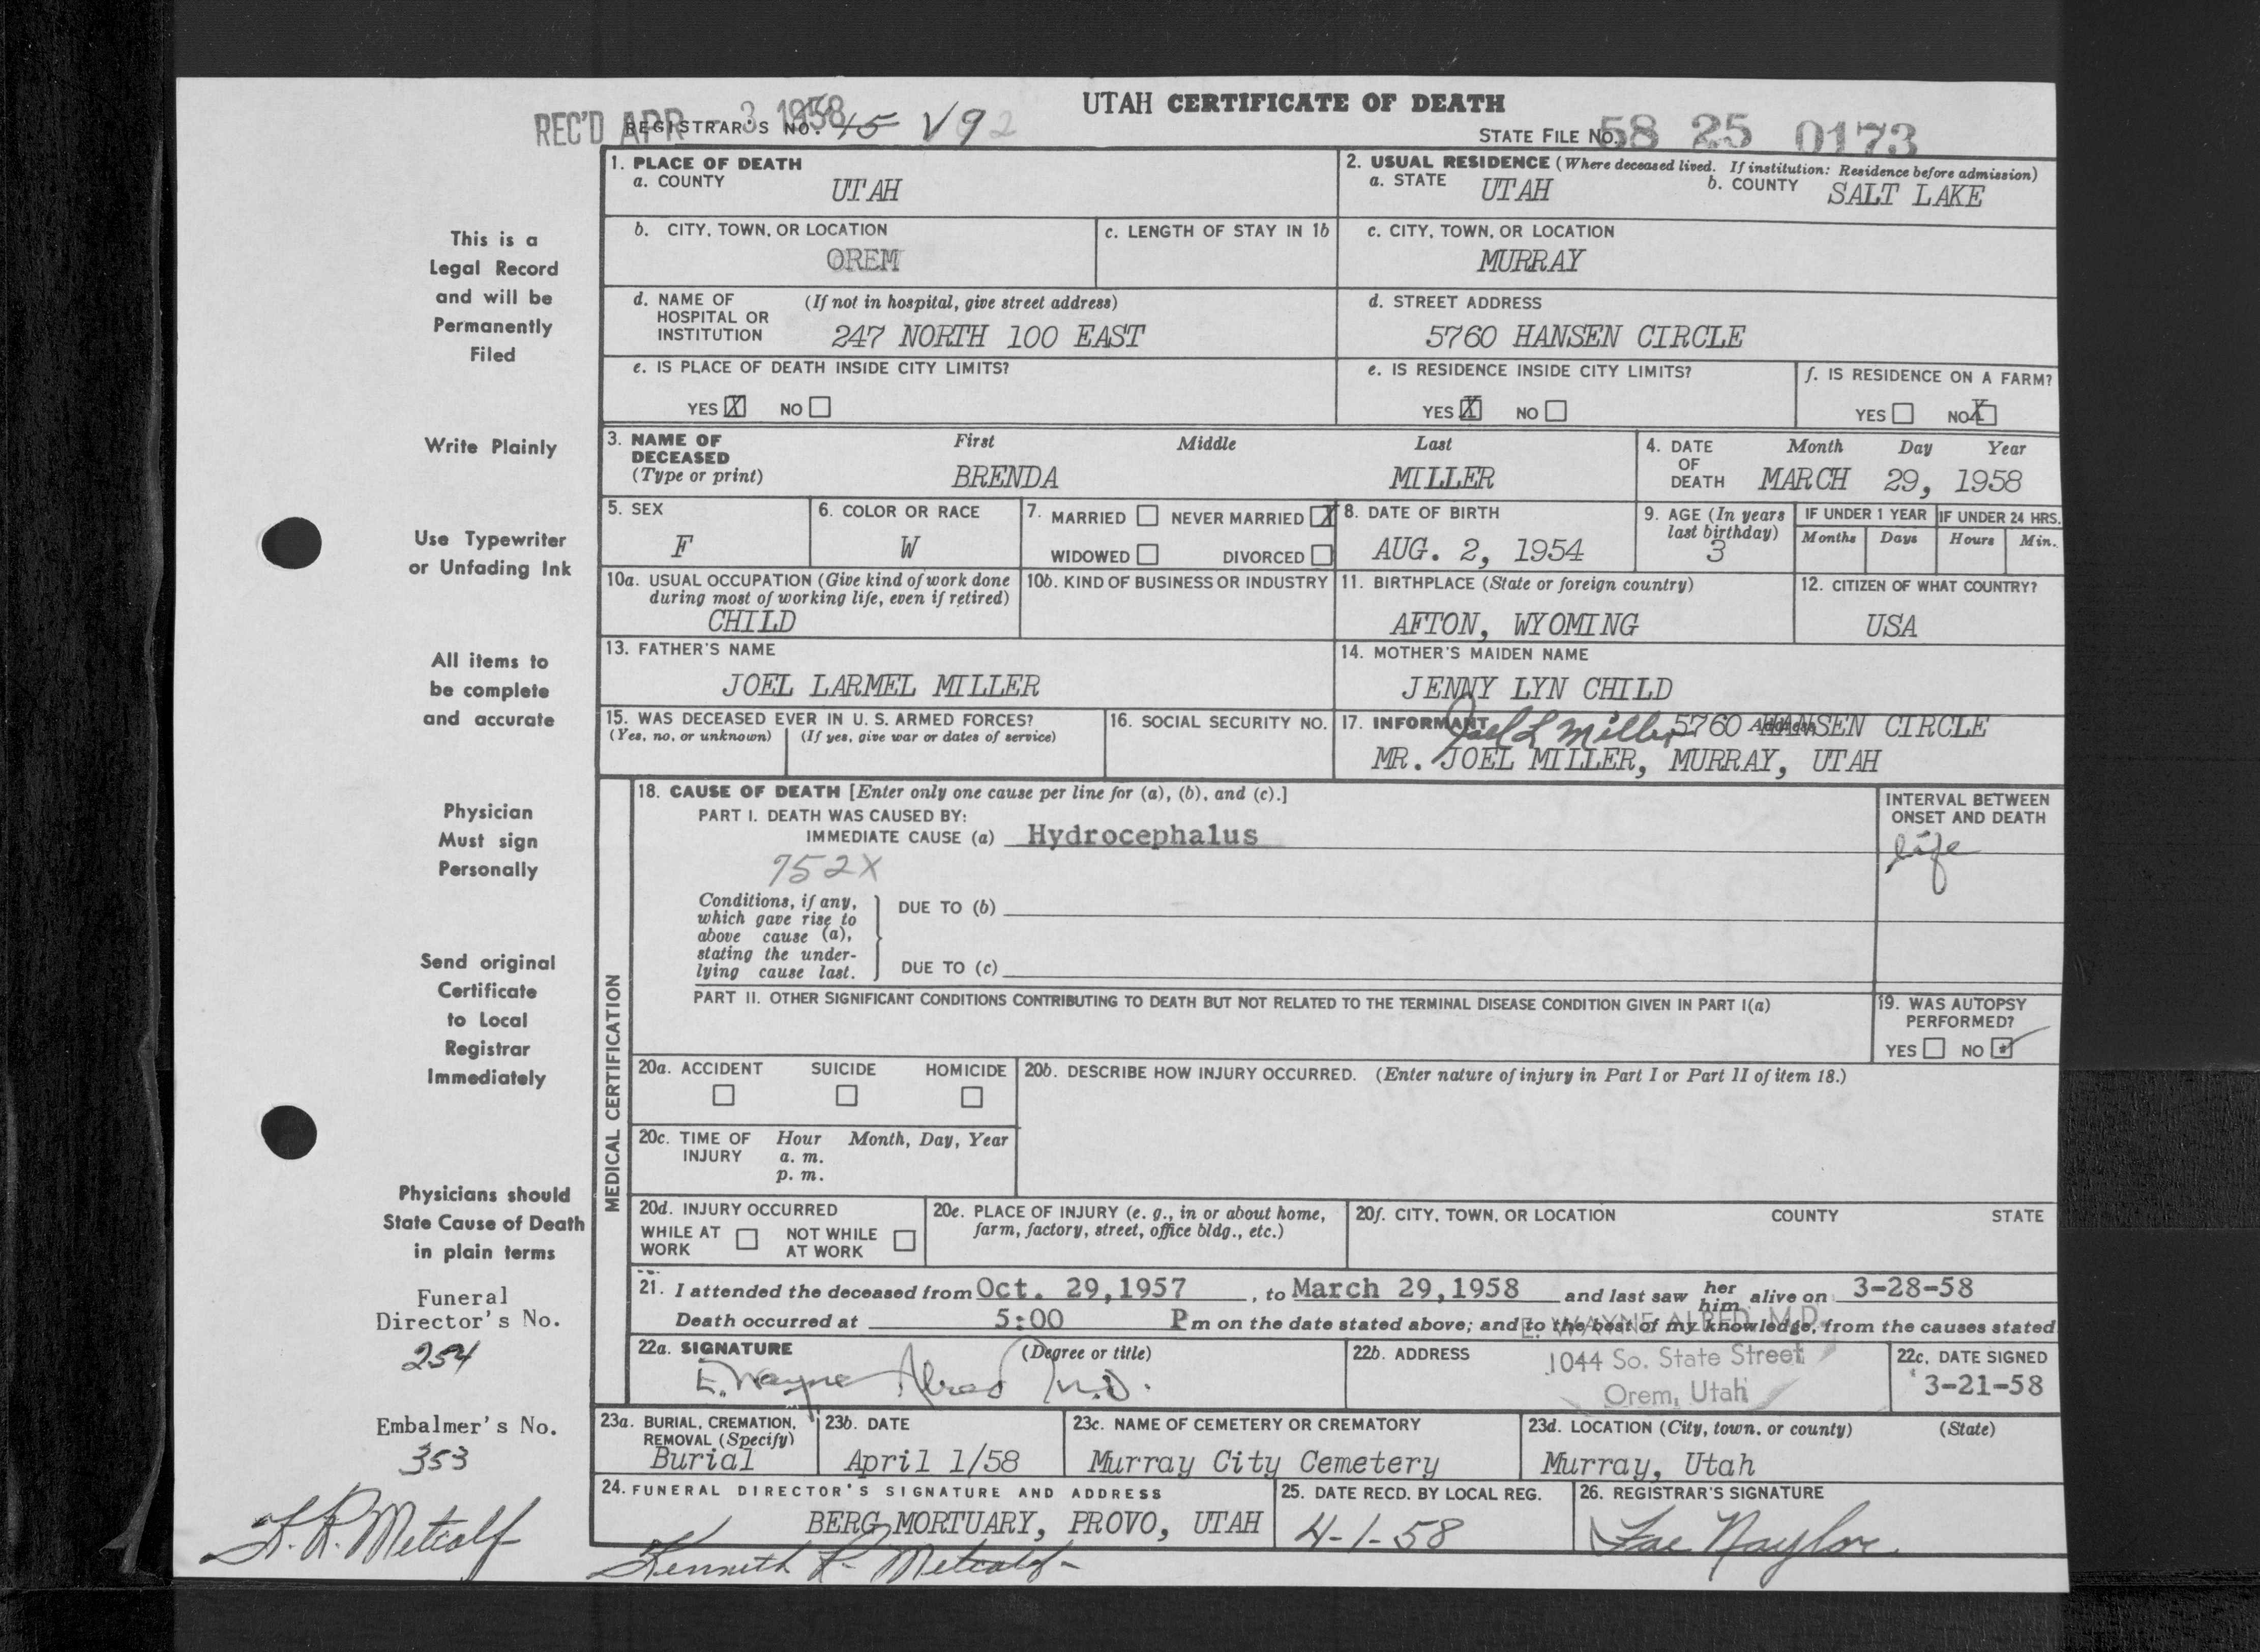 UTAH CERTIFICATE OF DEATH
REC'D APR - 3 1958
REGISTRAR'S NO. 45 V92
STATE FILE NO. 58 25 0173
This is a
Legal Record
and will be
Permanently
Filed
Write Plainly
Use Typewriter
or Unfading Ink
All items to
be complete
and accurate
Physician
Must sign
Personally
Send original
Certificate
to Local
Registrar
Immediately
Physicians should
State Cause of Death
in plain terms
Funeral
Director's No.
254
Embalmer's No.
353
1. PLACE OF DEATH
a. COUNTY UTAH
2. USUAL RESIDENCE (Where deceased lived. If institution: Residence before admission)
a. STATE UTAH b. COUNTY SALT LAKE
b. CITY, TOWN, OR LOCATION
OREM
c. LENGTH OF STAY IN 1b
c. CITY, TOWN, OR LOCATION
MURRAY
d. NAME OF HOSPITAL OR INSTITUTION (If not in hospital, give street address)
247 NORTH 100 EAST
d. STREET ADDRESS
5760 HANSEN CIRCLE
e. IS PLACE OF DEATH INSIDE CITY LIMITS?
YES X NO
e. IS RESIDENCE INSIDE CITY LIMITS?
YES X NO
f. IS RESIDENCE ON A FARM?
YES NO X
3. NAME OF DECEASED (Type or print)
First Middle Last
BRENDA MILLER
4. DATE OF DEATH Month Day Year
MARCH 29, 1958
5. SEX
F
6. COLOR OR RACE
W
7. MARRIED NEVER MARRIED X
WIDOWED DIVORCED
8. DATE OF BIRTH
AUG. 2, 1954
9. AGE (In years last birthday)
3
IF UNDER 1 YEAR
Months Days
IF UNDER 24 HRS.
Hours Min.
10a. USUAL OCCUPATION (Give kind of work done during most of working life, even if retired)
CHILD
10b. KIND OF BUSINESS OR INDUSTRY
11. BIRTHPLACE (State or foreign country)
AFTON, WYOMING
12. CITIZEN OF WHAT COUNTRY?
USA
13. FATHER'S NAME
JOEL LARMEL MILLER
14. MOTHER'S MAIDEN NAME
JENNY LYN CHILD
15. WAS DECEASED EVER IN U. S. ARMED FORCES?
(Yes, no, or unknown) (If yes, give war or dates of service)
16. SOCIAL SECURITY NO.
17. INFORMANT Joel L Miller Address 5760 HANSEN CIRCLE
MR. JOEL MILLER, MURRAY, UTAH
MEDICAL CERTIFICATION
18. CAUSE OF DEATH [Enter only one cause per line for (a), (b), and (c).]
PART I. DEATH WAS CAUSED BY:
IMMEDIATE CAUSE (a) Hydrocephalus
752X
INTERVAL BETWEEN
ONSET AND DEATH
life
Conditions, if any,
which gave rise to
above cause (a),
stating the under-
lying cause last.
DUE TO (b)
DUE TO (c)
PART II. OTHER SIGNIFICANT CONDITIONS CONTRIBUTING TO DEATH BUT NOT RELATED TO THE TERMINAL DISEASE CONDITION GIVEN IN PART I(a)
19. WAS AUTOPSY
PERFORMED?
YES NO
20a. ACCIDENT SUICIDE HOMICIDE
20b. DESCRIBE HOW INJURY OCCURRED. (Enter nature of injury in Part I or Part II of item 18.)
20c. TIME OF INJURY Hour Month, Day, Year
a. m.
p. m.
20d. INJURY OCCURRED
WHILE AT WORK NOT WHILE AT WORK
20e. PLACE OF INJURY (e. g., in or about home,
farm, factory, street, office bldg., etc.)
20f. CITY, TOWN, OR LOCATION COUNTY STATE
21. I attended the deceased from Oct. 29,1957, to March 29,1958 and last saw her him alive on 3-28-58
Death occurred at 5:00 P m on the date stated above; and to the best of my knowledge, from the causes stated
22a. SIGNATURE (Degree or title)
E. Wayne Alred M.D.
22b. ADDRESS
E. WAYNE ALRED M.D.
1044 So. State Street
Orem, Utah
22c. DATE SIGNED
3-21-58
23a. BURIAL, CREMATION,
REMOVAL (Specify)
Burial
23b. DATE
April 1/58
23c. NAME OF CEMETERY OR CREMATORY
Murray City Cemetery
23d. LOCATION (City, town, or county) (State)
Murray, Utah
24. FUNERAL DIRECTOR'S SIGNATURE AND ADDRESS
BERG MORTUARY, PROVO, UTAH
25. DATE RECD. BY LOCAL REG.
4-1-58
26. REGISTRAR'S SIGNATURE
Fae Naylor
K. R. Metcalf
Kenneth R. Metcalf